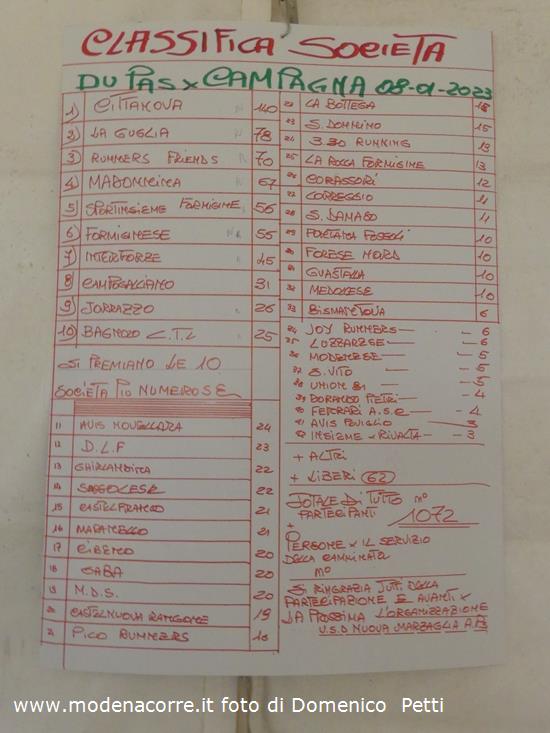 CLASSIFICA SOCIETA
DU PAS x CAMPAGNA 08-01-2023
1) CITTANOVA 140
2) LA GUGLIA 78
3) RUNNERS FRIENDS 70
4) MADONNINA 67
5) SPORTINSIEME FORMIGINE 56
6) FORMIGINESE 55
7) INTERFORZE 45
8) CAMPOGALLIANO 31
9) JORRAZZO 26
10) BAGNOLO C.T.L 25
SI PREMIANO LE 10
SOCIETA PIÙ NUMEROSE
11 AVIS NOVELLARA 24
12 D.L.F 23
13 GHIRLANDINA 22
14 SASSOLESE 22
15 CASTELFRANCO 21
16 MARANELLO 21
17 CIBENO 20
18 GABA 20
19 M.D.S. 20
20 CASTELNUOVO RANGONE 19
21 PICO RUNNERS 18
22 LA BOTTEGA
23 S. DONNINO 15
24 3.30 RUNNING
25 LA ROCCA FORMIGINE 13
26 CORASSORI 12
27 CORREGGIO 11
28 S. DAMASO 11
29 10
30 FORESE NORD 10
31 GUASTALLA 10
32 MEDOLESE 10
33 BISMANTOVA 6
34 JOY RUNNERS — 6
35 LUZZARESE — 6
36 MODENESE — 5
37 S. VITO — 5
38 UNION 81 — 5
39 DORANDO PIETRI — 4
40 FERRARI A.S.C — 4
41 AVIS POVIGLIO 3
42 INSIEME x RIVALTA — 3
+ ALTRI
+ LIBERI 62
TOTALE DI TUTTO n°
PARTECIPANTI 1072
+
PERSONE x IL SERVIZIO
DELLA CAMMINATA
n°
SI RINGRAZIA TUTTI DELLA
PARTECIPAZIONE E AVANTI x
LA PROSSIMA L'ORGANIZZAZIONE
U.S.D NUOVA MARZAGLIA
www.modenacorre.it foto di Domenico Petti